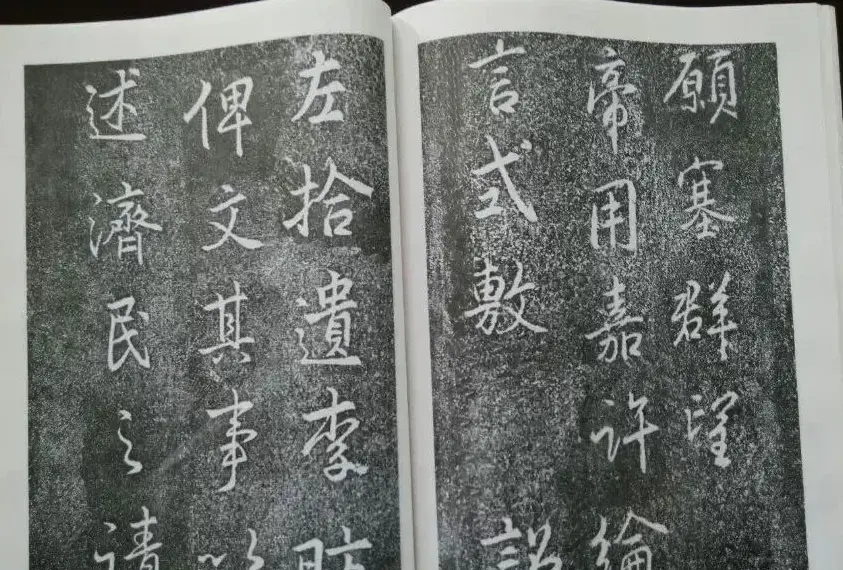 願塞群望
帝用嘉許綸
言式敷 詔
左拾遺李昉
俾文其事以
述濟民之請